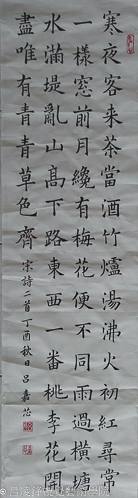 寒夜客来茶當酒竹爐湯沸火初紅尋常
一樣窓前月纔有梅花便不同雨過橫塘
水滿堤亂山髙下路東西一番桃李花開
盡唯有青青草色齊
宋詩二首丁酉秋日吕嘉芯